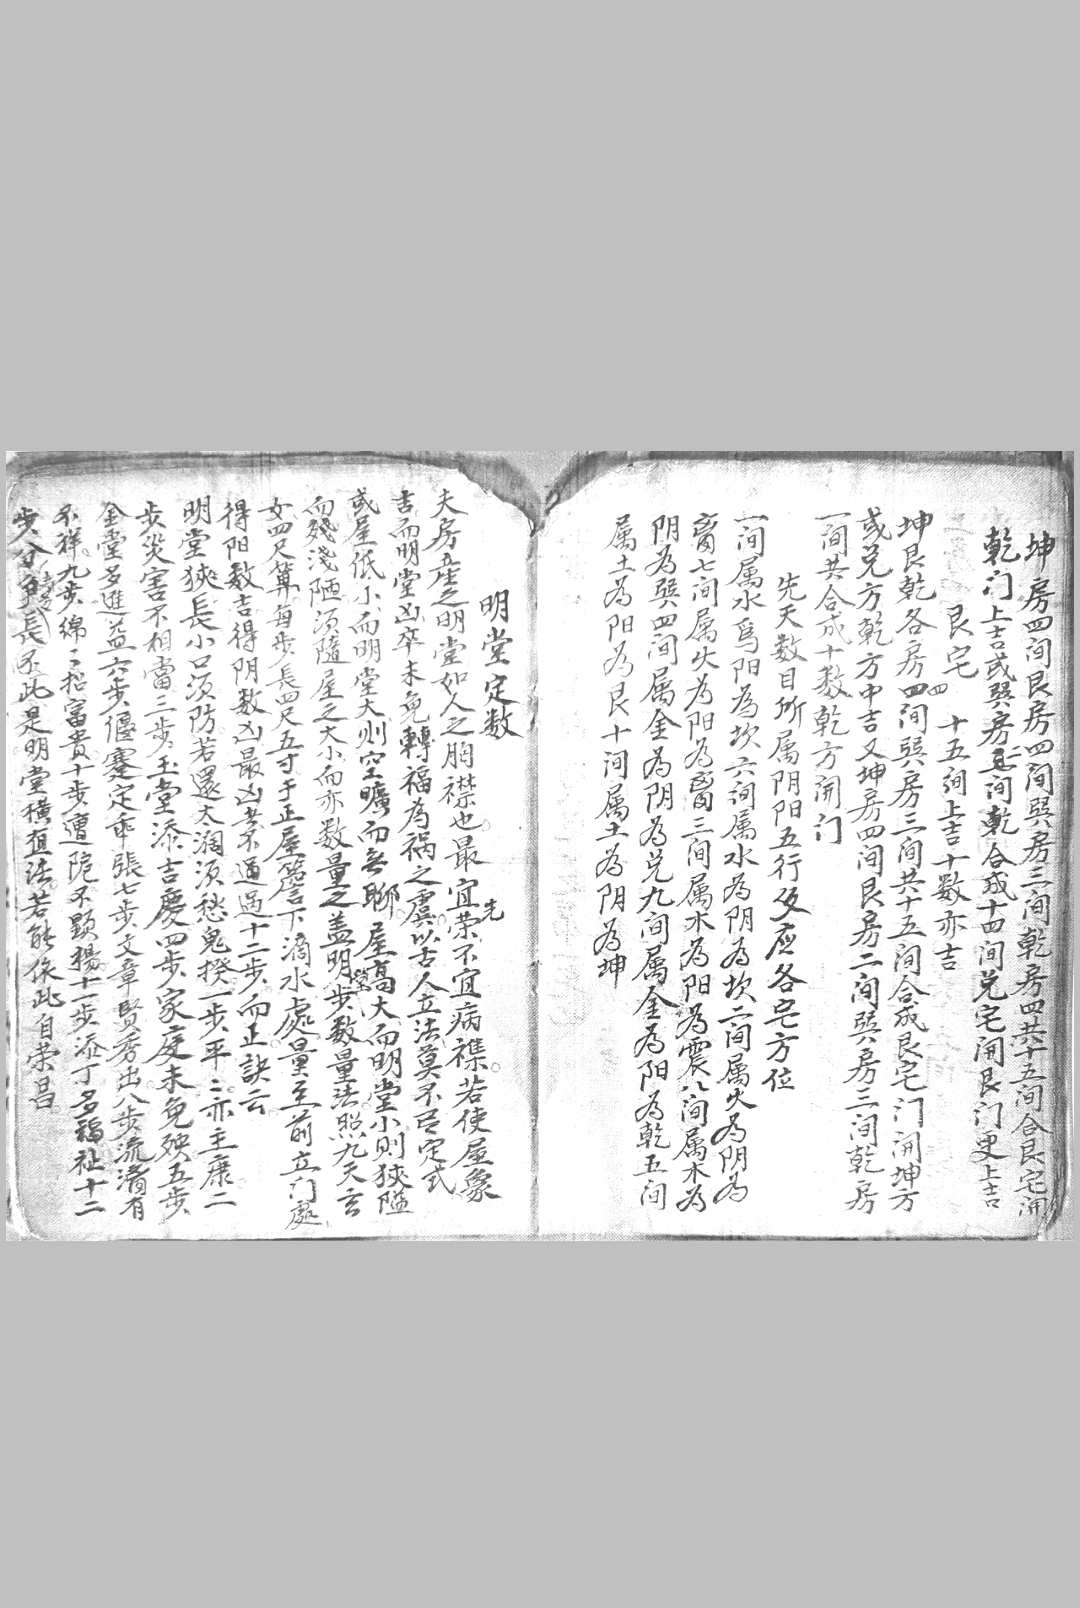 坤房四间艮房四间巽房三间乾房四共十五间合艮宅開
乾门上吉或巽房五间乾合成十四间兑宅開艮门更上吉
艮宅 十五间上吉十数亦吉
坤艮乾各房四间巽房三间共十五间合成艮宅门開坤方
四
或兑方乾方中吉又坤房四间艮房二间巽房三间乾房
一间共合成十数乾方開门
先天数目所属阴阳五行及应各宅方位
一间属水為阳為坎六间属水為阴為坎二间属火為阴為
离七间属火為阳為离三间属木為阳為震八间属木為
阴為巽四间属金為阴為兑九间属金為阳為乾五间
属土為阳為艮十间属土為阴為坤
明堂定数
先
夫房产之明堂如人之胸襟也最宜荣不宜病襍若使屋象
吉而明堂凶卒未免轉福為祸之虞以古人立法莫不已定式
或屋低小而明堂大则空曠而無聊屋高大而明堂小则狹隘
而殘淺陋須隨屋之大小而亦数量之盖明步数量法照九天玄
堂
女四尺算每步長四尺五寸于正屋簷下滴水處量至前立门處
得阳数吉得阴数凶最凶者不過過十二步而正訣云
明堂狹長小口須防若還太濶須愁鬼揆一步平二亦主康二
步災害不相當三步玉堂添吉慶四步家庭未免殃五步
金堂多進益六步偃蹇定乖張七步文章賢秀出八步流湝有
不祥九步綿二招富貴十步遭阨不顯揚十一步添丁多福祉十二
步分離長此是明堂橫直法若能依此自荣昌